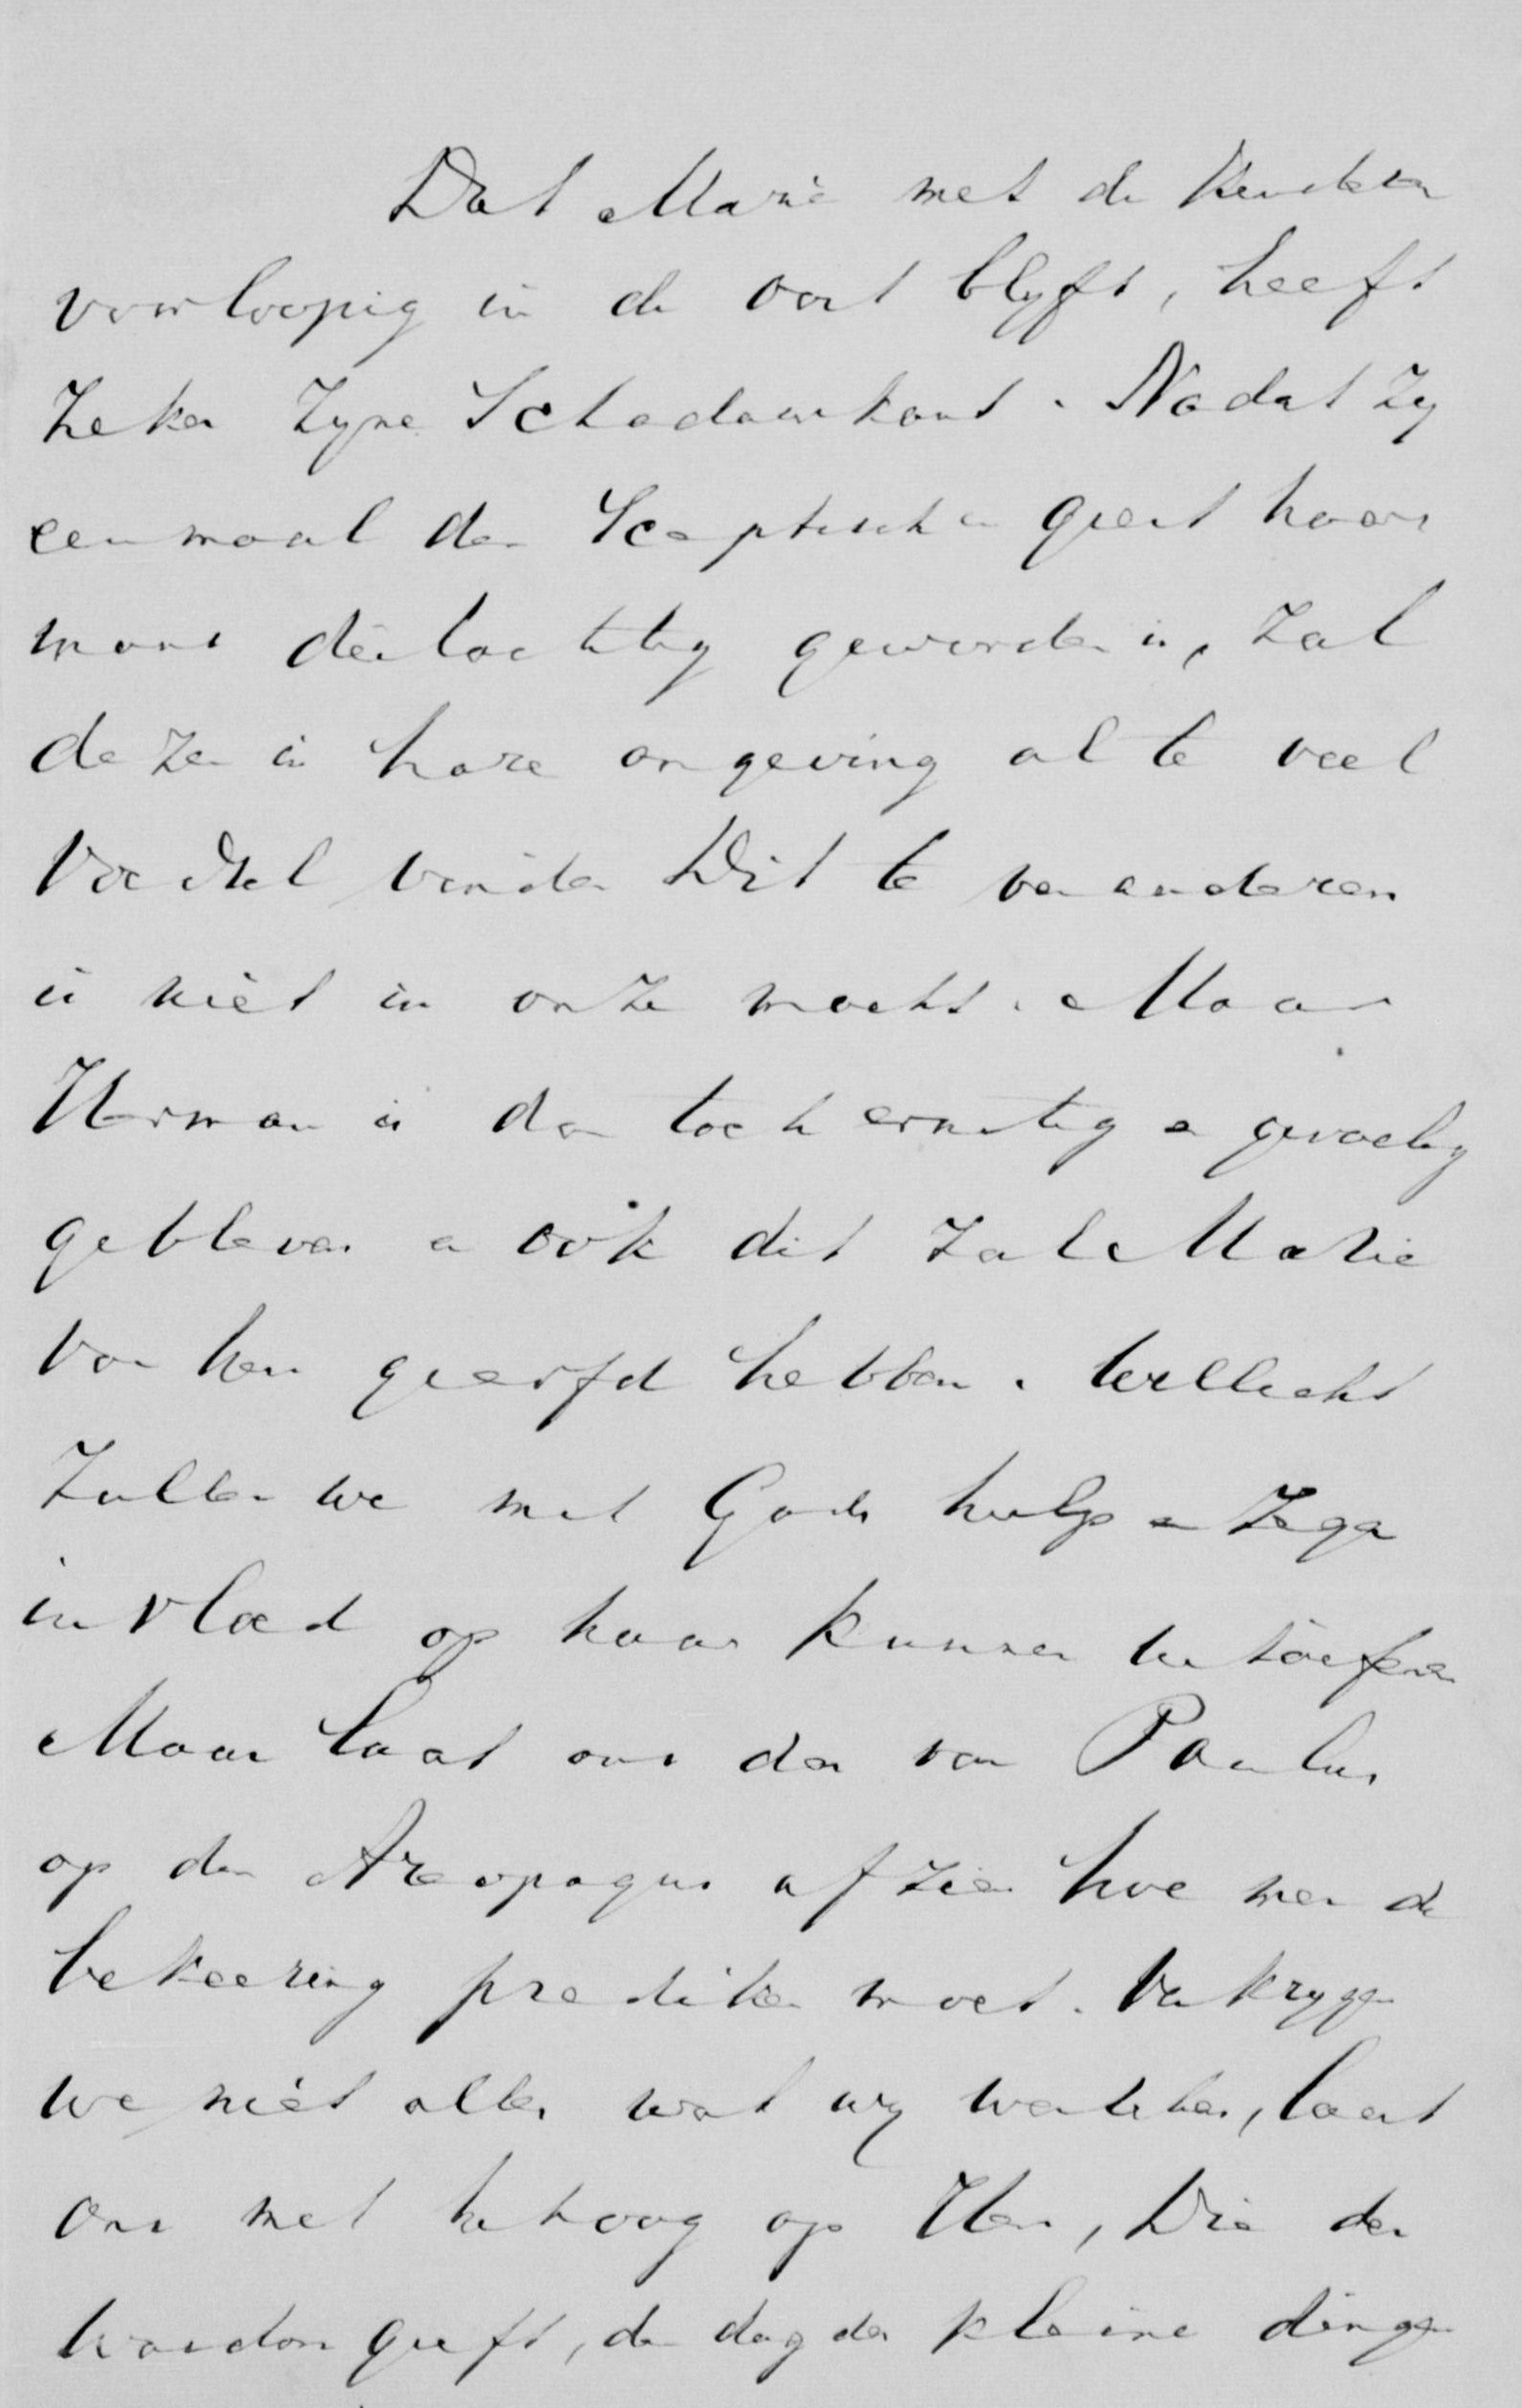 Dat Marie met de kinderen
voorloopig in de oost blyft, heeft
zeker zyne schaduwkant. Nadat zy
eenmaal den sceptischen geest haars
mans deelachtig geworden is, zal
deze in hare omgeving al te veel
voedsel vinden Dit te veranderen
is niet in onze macht. Maar
Herman is dan toch ernstig en gevoelig
gebleven en ook dit zal Marie
van hem geerfd hebben. Wellicht
zullen we met Gods hulp en zegen
invloed op haar kunnen uitoefenen
Maar laat ons dan van Paulus
op den Areopagus afzien hoe men de
bekeering prediken moet. Verkrygen
we niet alles wat wy wenschen, laat
ons met het oog op Hem, Die den
wasdom geeft, de dag der kleine dingen